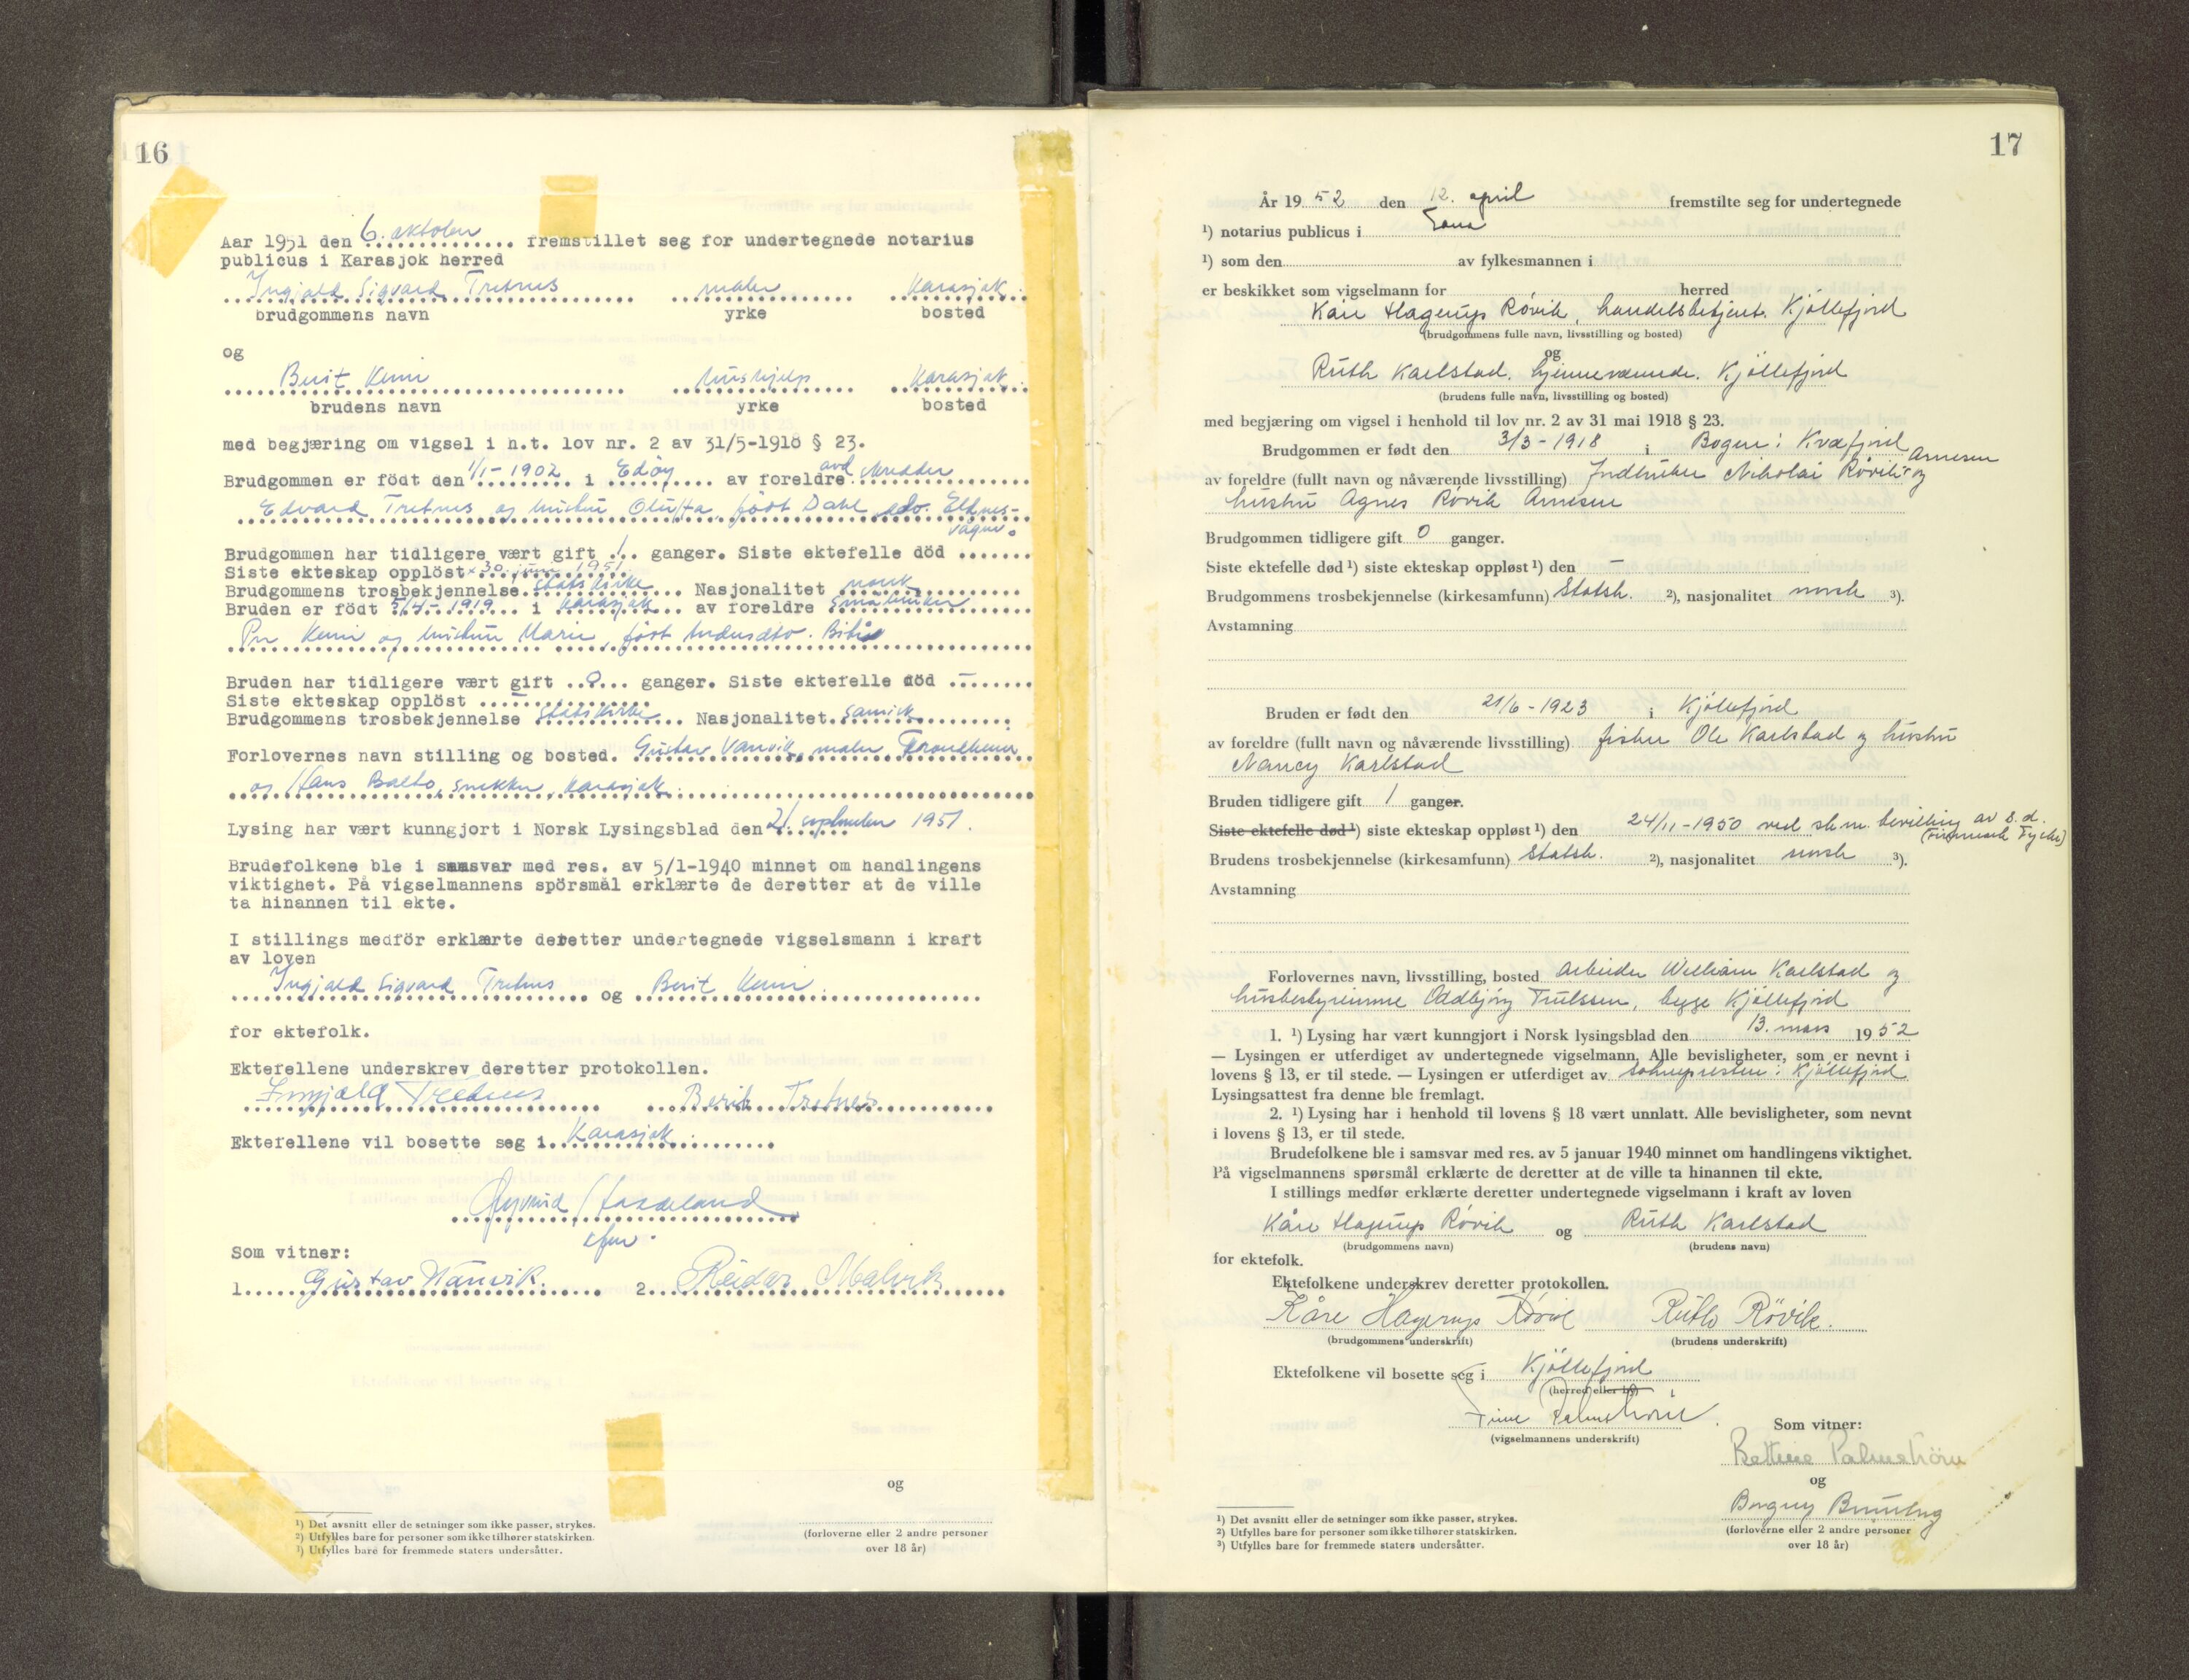 16
Aar 1951 den 6. oktober fremstillet seg for undertegnede notarius
publicus i Karasjok herred
Ingjald Sigvard Tretnes maler Karasjok
brudgommens navn yrke bosted
og
Berit Kemi hushjelp Karasjok
brudens navn yrke bosted
med begjæring om vigsel i h.t. lov nr. 2 av 31/5-1918 § 23.
Brudgommen er födt den 1/1-1902 i Edöy av foreldre avd.
Edvard Tretnes og hustru Oluffa, födt Dahl
Brudgommen har tidligere vært gift 1 ganger. Siste ektefelle död
Siste ekteskap opplöst 30. juni 1951
Brudgommens trosbekjennelse statskirke Nasjonalitet norsk
Bruden er födt 5/4-1919 i Karasjok av foreldre småbruker
Per Kemi og hustru Marie, födt
Bruden har tidligere vært gift 0 ganger. Siste ektefelle död —
Siste ekteskap opplöst —
Brudgommens trosbekjennelse statskirke Nasjonalitet samisk
Forlovernes navn stilling og bosted. Gustav Vanvik, maler Trondheim
og Hans Balto, snekker, Karasjok.
Lysing har vært kunngjort i Norsk Lysingsblad den 21. september 1951.
Brudefolkene ble i samsvar med res. av 5/1-1940 minnet om handlingens
viktighet. På vigselmannens spörsmål erklærte de deretter at de ville
ta hinannen til ekte.
I stillings medför erklærte deretter undertegnede vigselsmann i kraft
av loven
Ingjald Sigvard Tretnes og Berit Kemi
for ektefolk.
Ektefellene underskrev deretter protokollen.
Ingjald Tretnes Berit Tretnes
Ektefellene vil bosette seg i Karasjok
Som vitner:
1. Gustav Wanvik. 2. Reidar Malvik
og
¹) Det avsnitt eller de setninger som ikke passer, strykes.
²) Utfylles bare for personer som ikke tilhører statskirken.
³) Utfylles bare for fremmede staters undersåtter.
(forloverne eller 2 andre personer
over 18 år)
17
År 1952 den 12. april fremstilte seg for undertegnede
¹) notarius publicus i Tana
¹) som den av fylkesmannen i
er beskikket som vigselmann for herred
Kåre Hagerup Røvik, handelsbetjent. Kjøllefjord
(brudgommens fulle navn, livsstilling og bosted)
og
Ruth Karlstad. hjemmeværende. Kjøllefjord
(brudens fulle navn, livsstilling og bosted)
med begjæring om vigsel i henhold til lov nr. 2 av 31 mai 1918 § 23.
Brudgommen er født den 3/3-1918 i Bogen i Kvæfjord
av foreldre (fullt navn og nåværende livsstilling) Nikolai Røvik Arnesen og
hustru Agnes Røvik Arnesen
Brudgommen tidligere gift 0 ganger.
Siste ektefelle død ¹) siste ekteskap oppløst ¹) den —
Brudgommens trosbekjennelse (kirkesamfunn) Statsk. ²), nasjonalitet norsk ³).
Avstamning
Bruden er født den 21/6-1923 i Kjøllefjord
av foreldre (fullt navn og nåværende livsstilling) fisker Ole Karlstad og hustru
Nancy Karlstad
Bruden tidligere gift 1 ganger.
Siste ektefelle død ¹) siste ekteskap oppløst ¹) den 24/11-1950 ved sk.m. bevilling av s.d.
Brudens trosbekjennelse (kirkesamfunn) Statsk. ²), nasjonalitet norsk ³).
Avstamning
Forlovernes navn, livsstilling, bosted arbeider William Karlstad og
husbestyrerinne Oddbjørg Trulssen, begge Kjøllefjord
1. ¹) Lysing har vært kunngjort i Norsk lysingsblad den 13. mars 1952
— Lysingen er utferdiget av undertegnede vigselmann. Alle bevisligheter, som er nevnt i
lovens § 13, er til stede. — Lysingen er utferdiget av Sokneprestens i Kjøllefjord
Lysingsattest fra denne ble fremlagt.
2. ¹) Lysing har i henhold til lovens § 18 vært unnlatt. Alle bevisligheter, som nevnt
i lovens § 13, er til stede.
Brudefolkene ble i samsvar med res. av 5 januar 1940 minnet om handlingens viktighet.
På vigselmannens spørsmål erklærte de deretter at de ville ta hinannen til ekte.
I stillings medfør erklærte deretter undertegnede vigselmann i kraft av loven
Kåre Hagerup Røvik og Ruth Karlstad
(brudgommens navn) (brudens navn)
for ektefolk.
Ektefolkene underskrev deretter protokollen.
Kåre Hagerup Røvik Ruth Røvik.
(brudgommens underskrift) (brudens underskrift)
Ektefolkene vil bosette seg i Kjøllefjord
(herred eller by)
(vigselmannens underskrift)
Som vitner:
Bettine Palmstrøm
og
(forloverne eller 2 andre personer
over 18 år)
¹) Det avsnitt eller de setninger som ikke passer, strykes.
²) Utfylles bare for personer som ikke tilhører statskirken.
³) Utfylles bare for fremmede staters undersåtter.